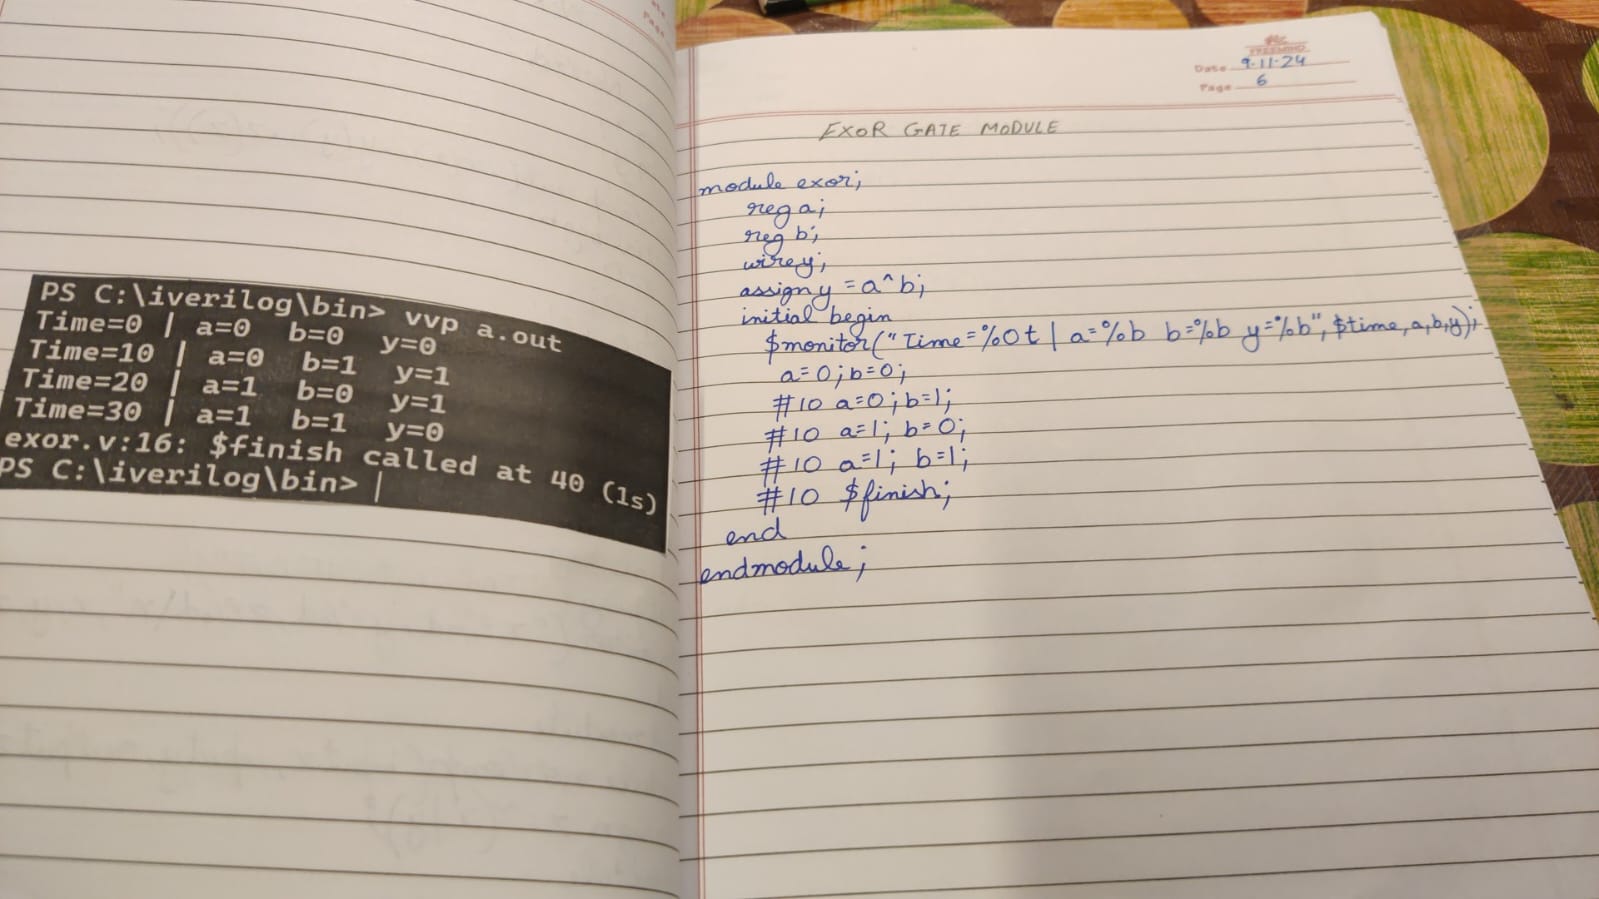 PS C:\iverilog\bin> vvp a.out
Time=0 | a=0 b=0 y=0
Time=10 | a=0 b=1 y=1
Time=20 | a=1 b=0 y=1
Time=30 | a=1 b=1 y=0
exor.v:16: $finish called at 40 (1s)
PS C:\iverilog\bin> |
Date 9-11-24
Page 6
EXOR GATE MODULE
module exor;
reg a;
reg b;
wire y;
assign y = a^b;
initial begin
$monitor("Time=%0t | a=%b b=%b y=%b", $time,a,b,y);
a=0; b=0;
#10 a=0; b=1;
#10 a=1; b=0;
#10 a=1; b=1;
#10 $finish;
end
endmodule;